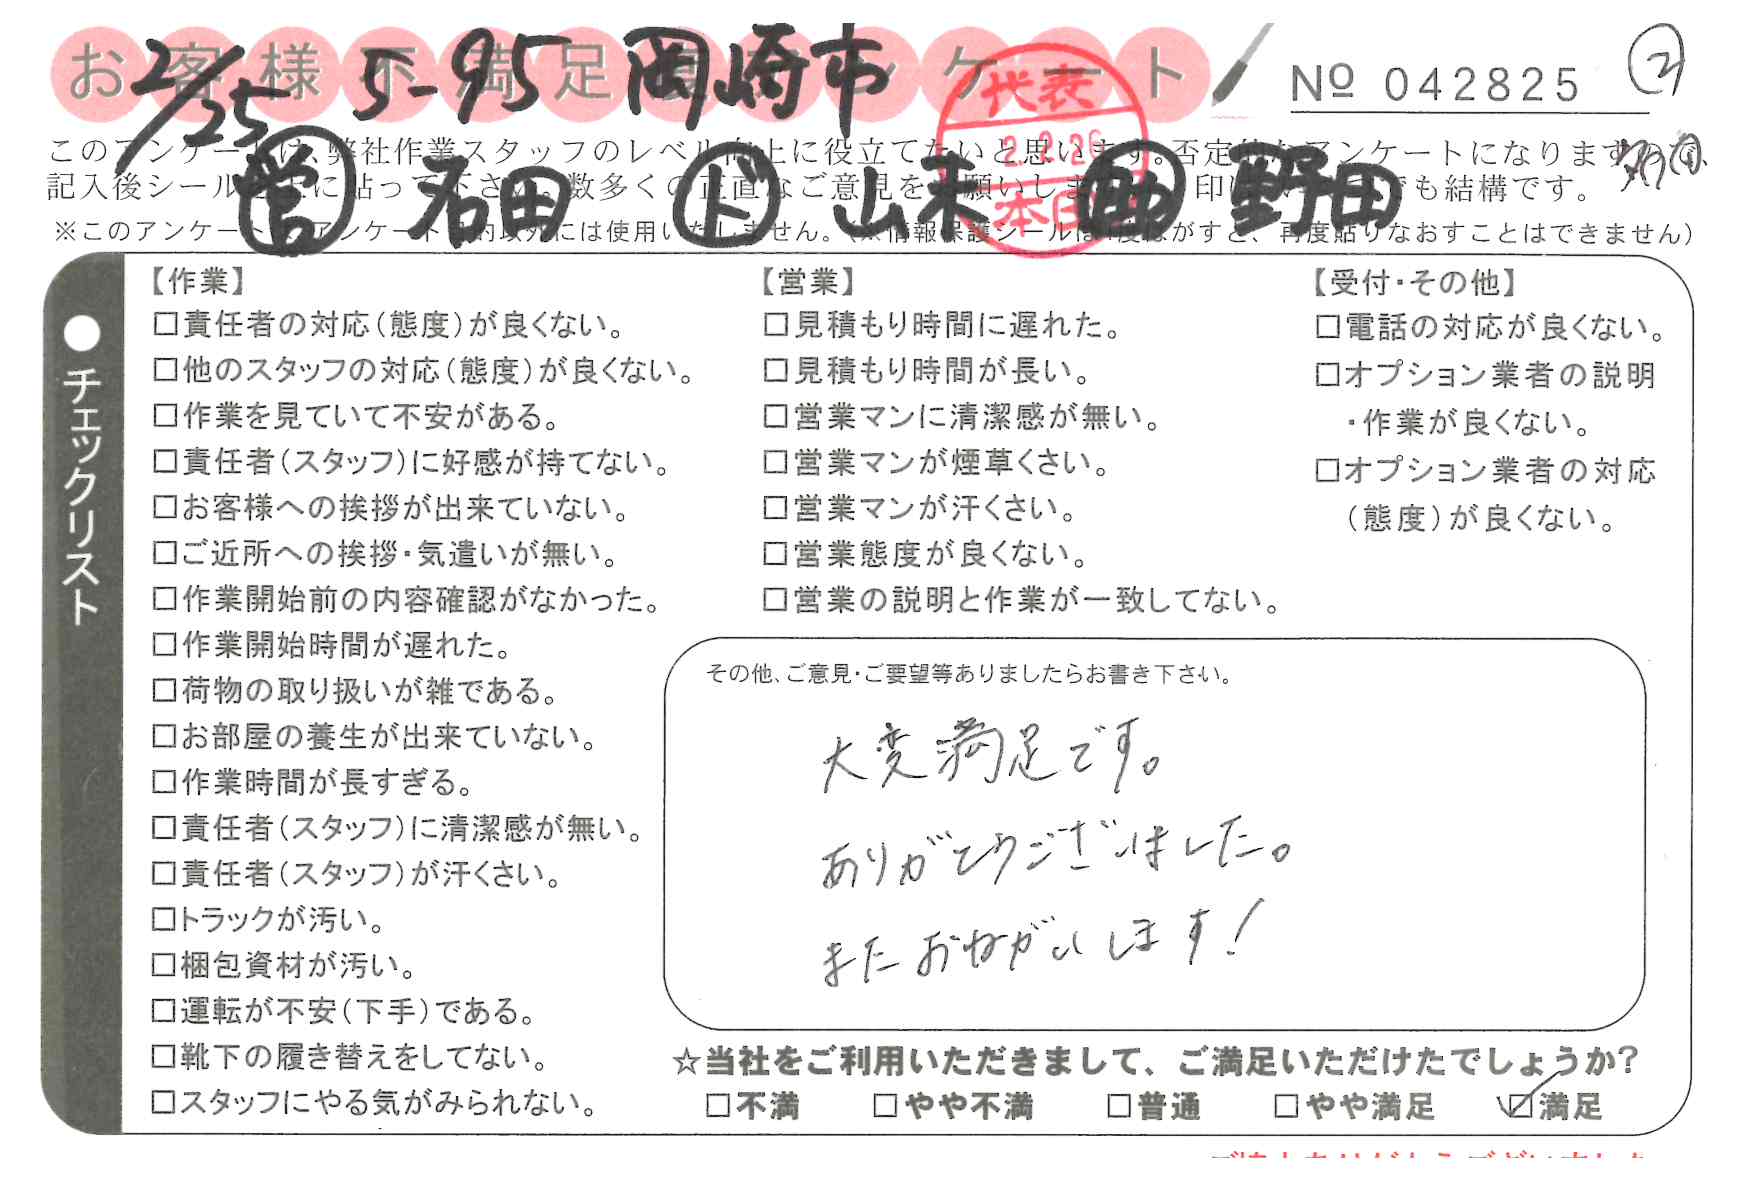 お客様不満足度アンケート
2/25 5-95 岡崎市
No 042825 ②
代表 2.2.26 本田
このアンケートは、弊社作業スタッフのレベル向上に役立てたいと思います。否定的なアンケートになりますので、
記入後シールを上に貼って下さい。数多くの正直なご意見をお願いします。
印は でも結構です。
営 石田 ド 山末 助 野田
※このアンケートはアンケート目的以外には使用いたしません。(※情報保護シールは1度はがすと、再度貼りなおすことはできません)
●チェックリスト
【作業】
□責任者の対応(態度)が良くない。
□他のスタッフの対応(態度)が良くない。
□作業を見ていて不安がある。
□責任者(スタッフ)に好感が持てない。
□お客様への挨拶が出来ていない。
□ご近所への挨拶・気遣いが無い。
□作業開始前の内容確認がなかった。
□作業開始時間が遅れた。
□荷物の取り扱いが雑である。
□お部屋の養生が出来ていない。
□作業時間が長すぎる。
□責任者(スタッフ)に清潔感が無い。
□責任者(スタッフ)が汗くさい。
□トラックが汚い。
□梱包資材が汚い。
□運転が不安(下手)である。
□靴下の履き替えをしてない。
□スタッフにやる気がみられない。
【営業】
□見積もり時間に遅れた。
□見積もり時間が長い。
□営業マンに清潔感が無い。
□営業マンが煙草くさい。
□営業マンが汗くさい。
□営業態度が良くない。
□営業の説明と作業が一致してない。
【受付・その他】
□電話の対応が良くない。
□オプション業者の説明
・作業が良くない。
□オプション業者の対応
(態度)が良くない。
その他、ご意見・ご要望等ありましたらお書き下さい。
大変満足です。
ありがとうございました。
またおねがいします!
☆当社をご利用いただきまして、ご満足いただけたでしょうか?
□不満 □やや不満 □普通 □やや満足 ☑満足